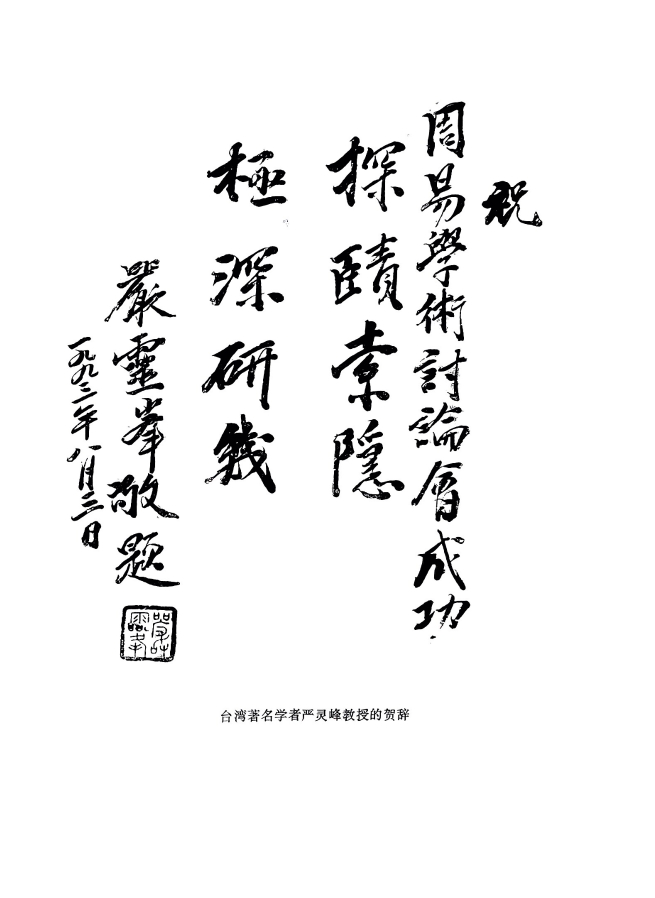 祝
周易學術討論會成功
探賾索隱
極深研幾
嚴靈峯敬題
一九九二年八月三日
台湾著名学者严灵峰教授的贺辞